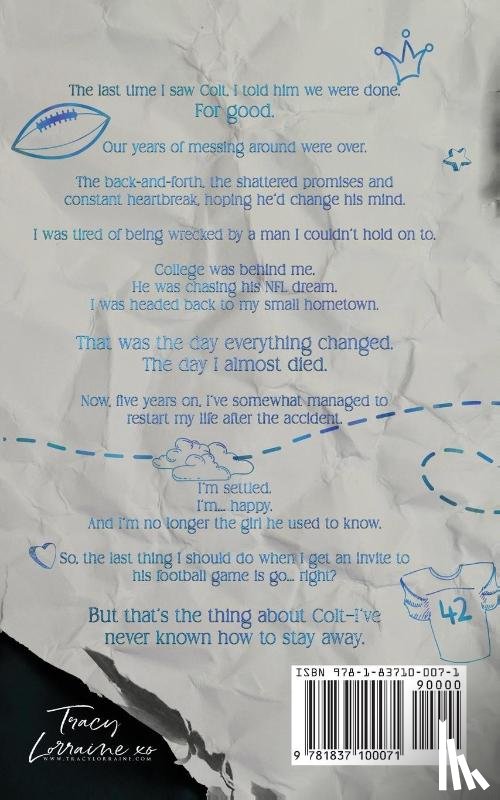 The last time I saw Colt, I told him we were done.
For good.
Our years of messing around were over.
The back-and-forth, the shattered promises and
constant heartbreak, hoping he'd change his mind.
I was tired of being wrecked by a man I couldn't hold on to.
College was behind me.
He was chasing his NFL dream.
I was headed back to my small hometown.
That was the day everything changed.
The day I almost died.
Now, five years on, I've somewhat managed to
restart my life after the accident.
I'm settled.
I'm... happy.
And I'm no longer the girl he used to know.
So, the last thing I should do when I get an invite to
his football game is go... right?
42
But that's the thing about Colt–I've
never known how to stay away.
ISBN 978-1-83710-007-1
90000
9 781837 100071
Tracy
Lorraine xo
WWW.TRACYLORRAINE.COM